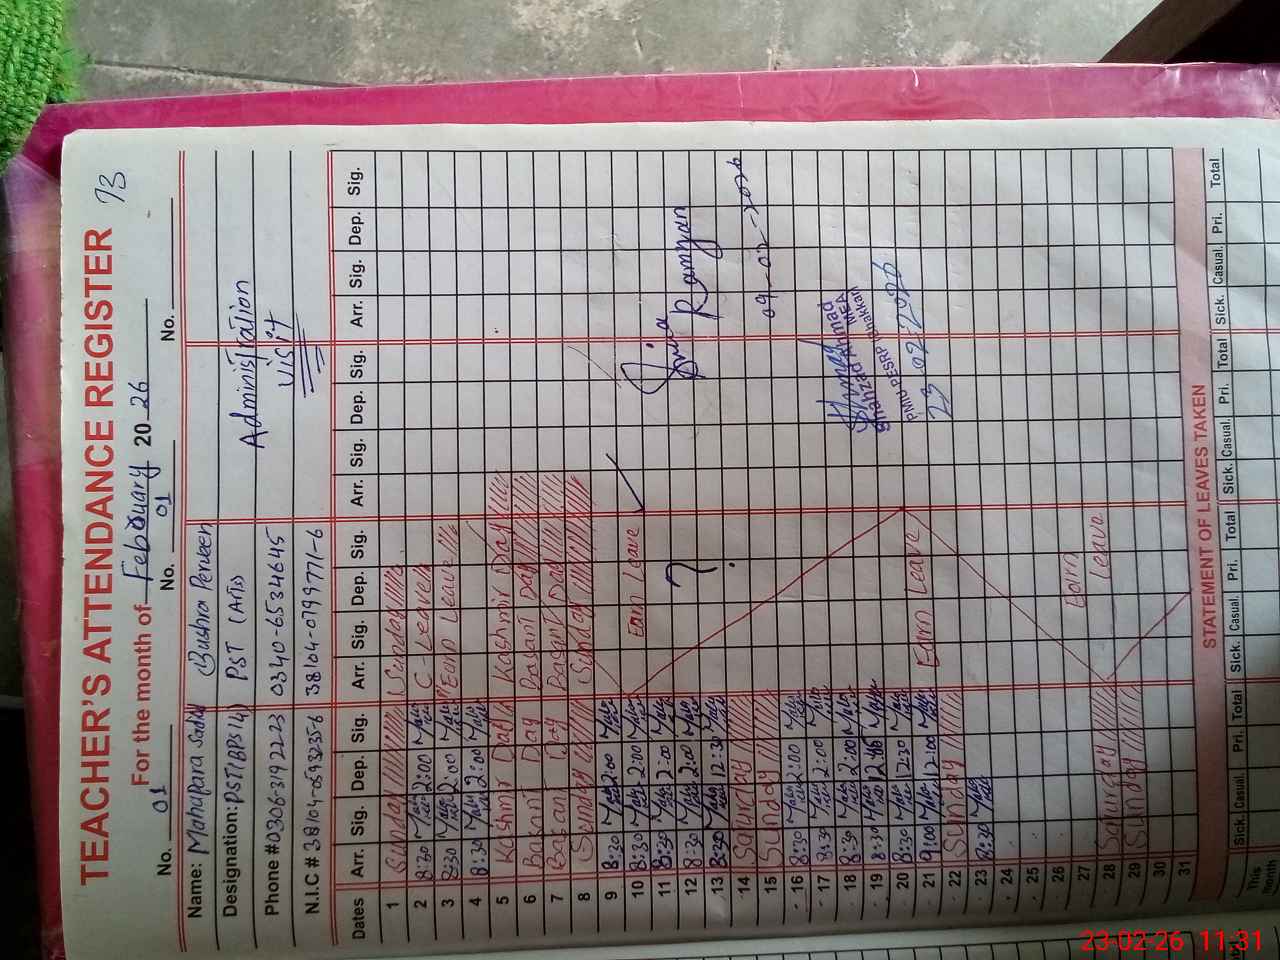 TEACHER'S ATTENDANCE REGISTER 73
For the month of February 2026
No. 01 No. 01 No.
Name: Mahapara Sadaf Bushra Perveen
Designation: PST(BPS14) PST (Arts) Administration
Phone # 0306-3192223 0340-6534645 Visit
N.I.C # 38104-0593235-6 38104-0799771-6
Dates Arr. Sig. Dep. Sig. Arr. Sig. Dep. Sig. Arr. Sig. Dep. Sig. Arr. Sig. Dep. Sig.
1 Sunday Sunday
2 8:30 2:00 C-Leave
3 8:30 2:00 Earn Leave
4 8:30 2:00
5 Kashmir Day Kashmir Day
6 Basant Day Basant Day
7 Basant Day Basant Day
8 Sunday Sunday
9 8:30 2:00
10 8:30 2:00 Earn Leave
11 8:30 2:00 ?
12 8:30 2:00 Ramzan
13 8:30 12:30
14 Saturday
15 Sunday 09-02-2026
16 8:30 2:00
17 8:30 2:00
18 8:30 2:00 Shahzad Ahmad
19 8:30 12:45 MEA
20 8:30 12:30 PMIU PESRP Bhakkar
21 9:00 12:00 Earn Leave 23-02-2026
22 Sunday
23 8:30
24
25
26
27 Earn
28 Saturday Leave
29 Sunday
30
31
STATEMENT OF LEAVES TAKEN
Sick. Casual. Pri. Total Sick. Casual. Pri. Total Sick. Casual. Pri. Total Sick. Casual. Pri. Total
This month
23-02-26 11:31